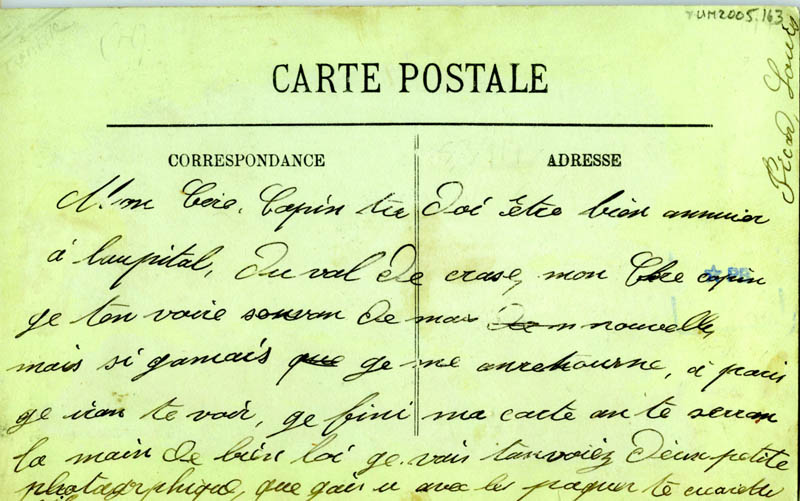 UM2005.163
Picar Louis
CARTE POSTALE
CORRESPONDANCE
ADRESSE
Mon Cére, Copin tu doi être bien annuier
à laupital, Du val De crase, mon Chre copin
ge ten voire souvan De mai nouvelle,
mais si gamais que ge me anretourne, à paris
ge iran te voir, ge fini ma carte an te serran
la main De bien loi ge vais tanvoiéz Deux petite
photagrphique, que gais u avec les paquet te